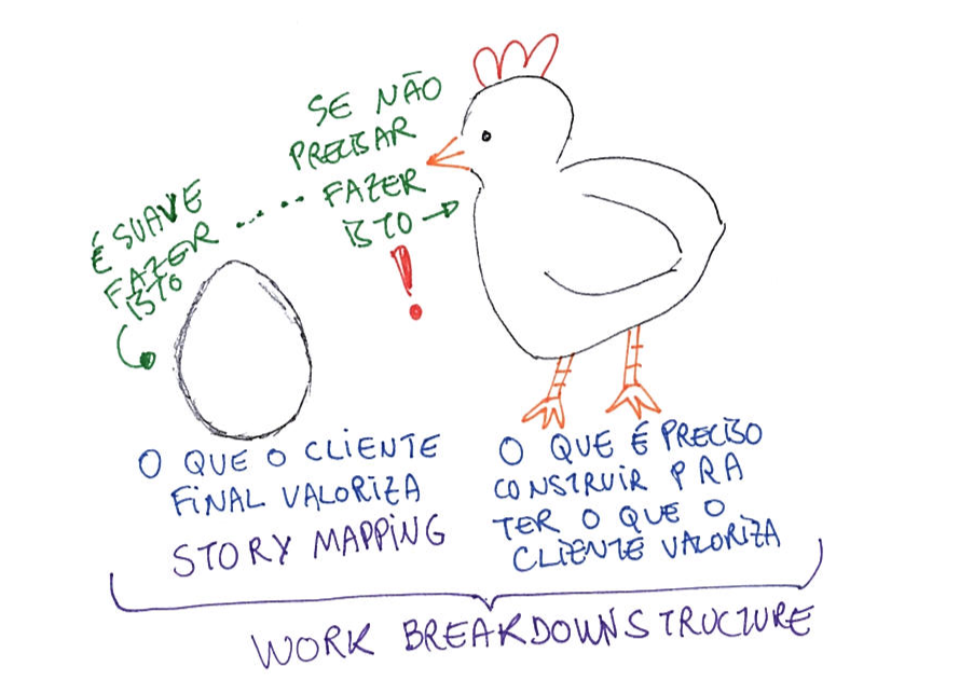 É SUAVE
FAZER
ISTO
SE NÃO
PRECISAR
FAZER
ISTO
!
O QUE O CLIENTE
FINAL VALORIZA
STORY MAPPING
O QUE É PRECISO
CONSTRUIR PRA
TER O QUE O
CLIENTE VALORIZA
WORK BREAKDOWN STRUCTURE